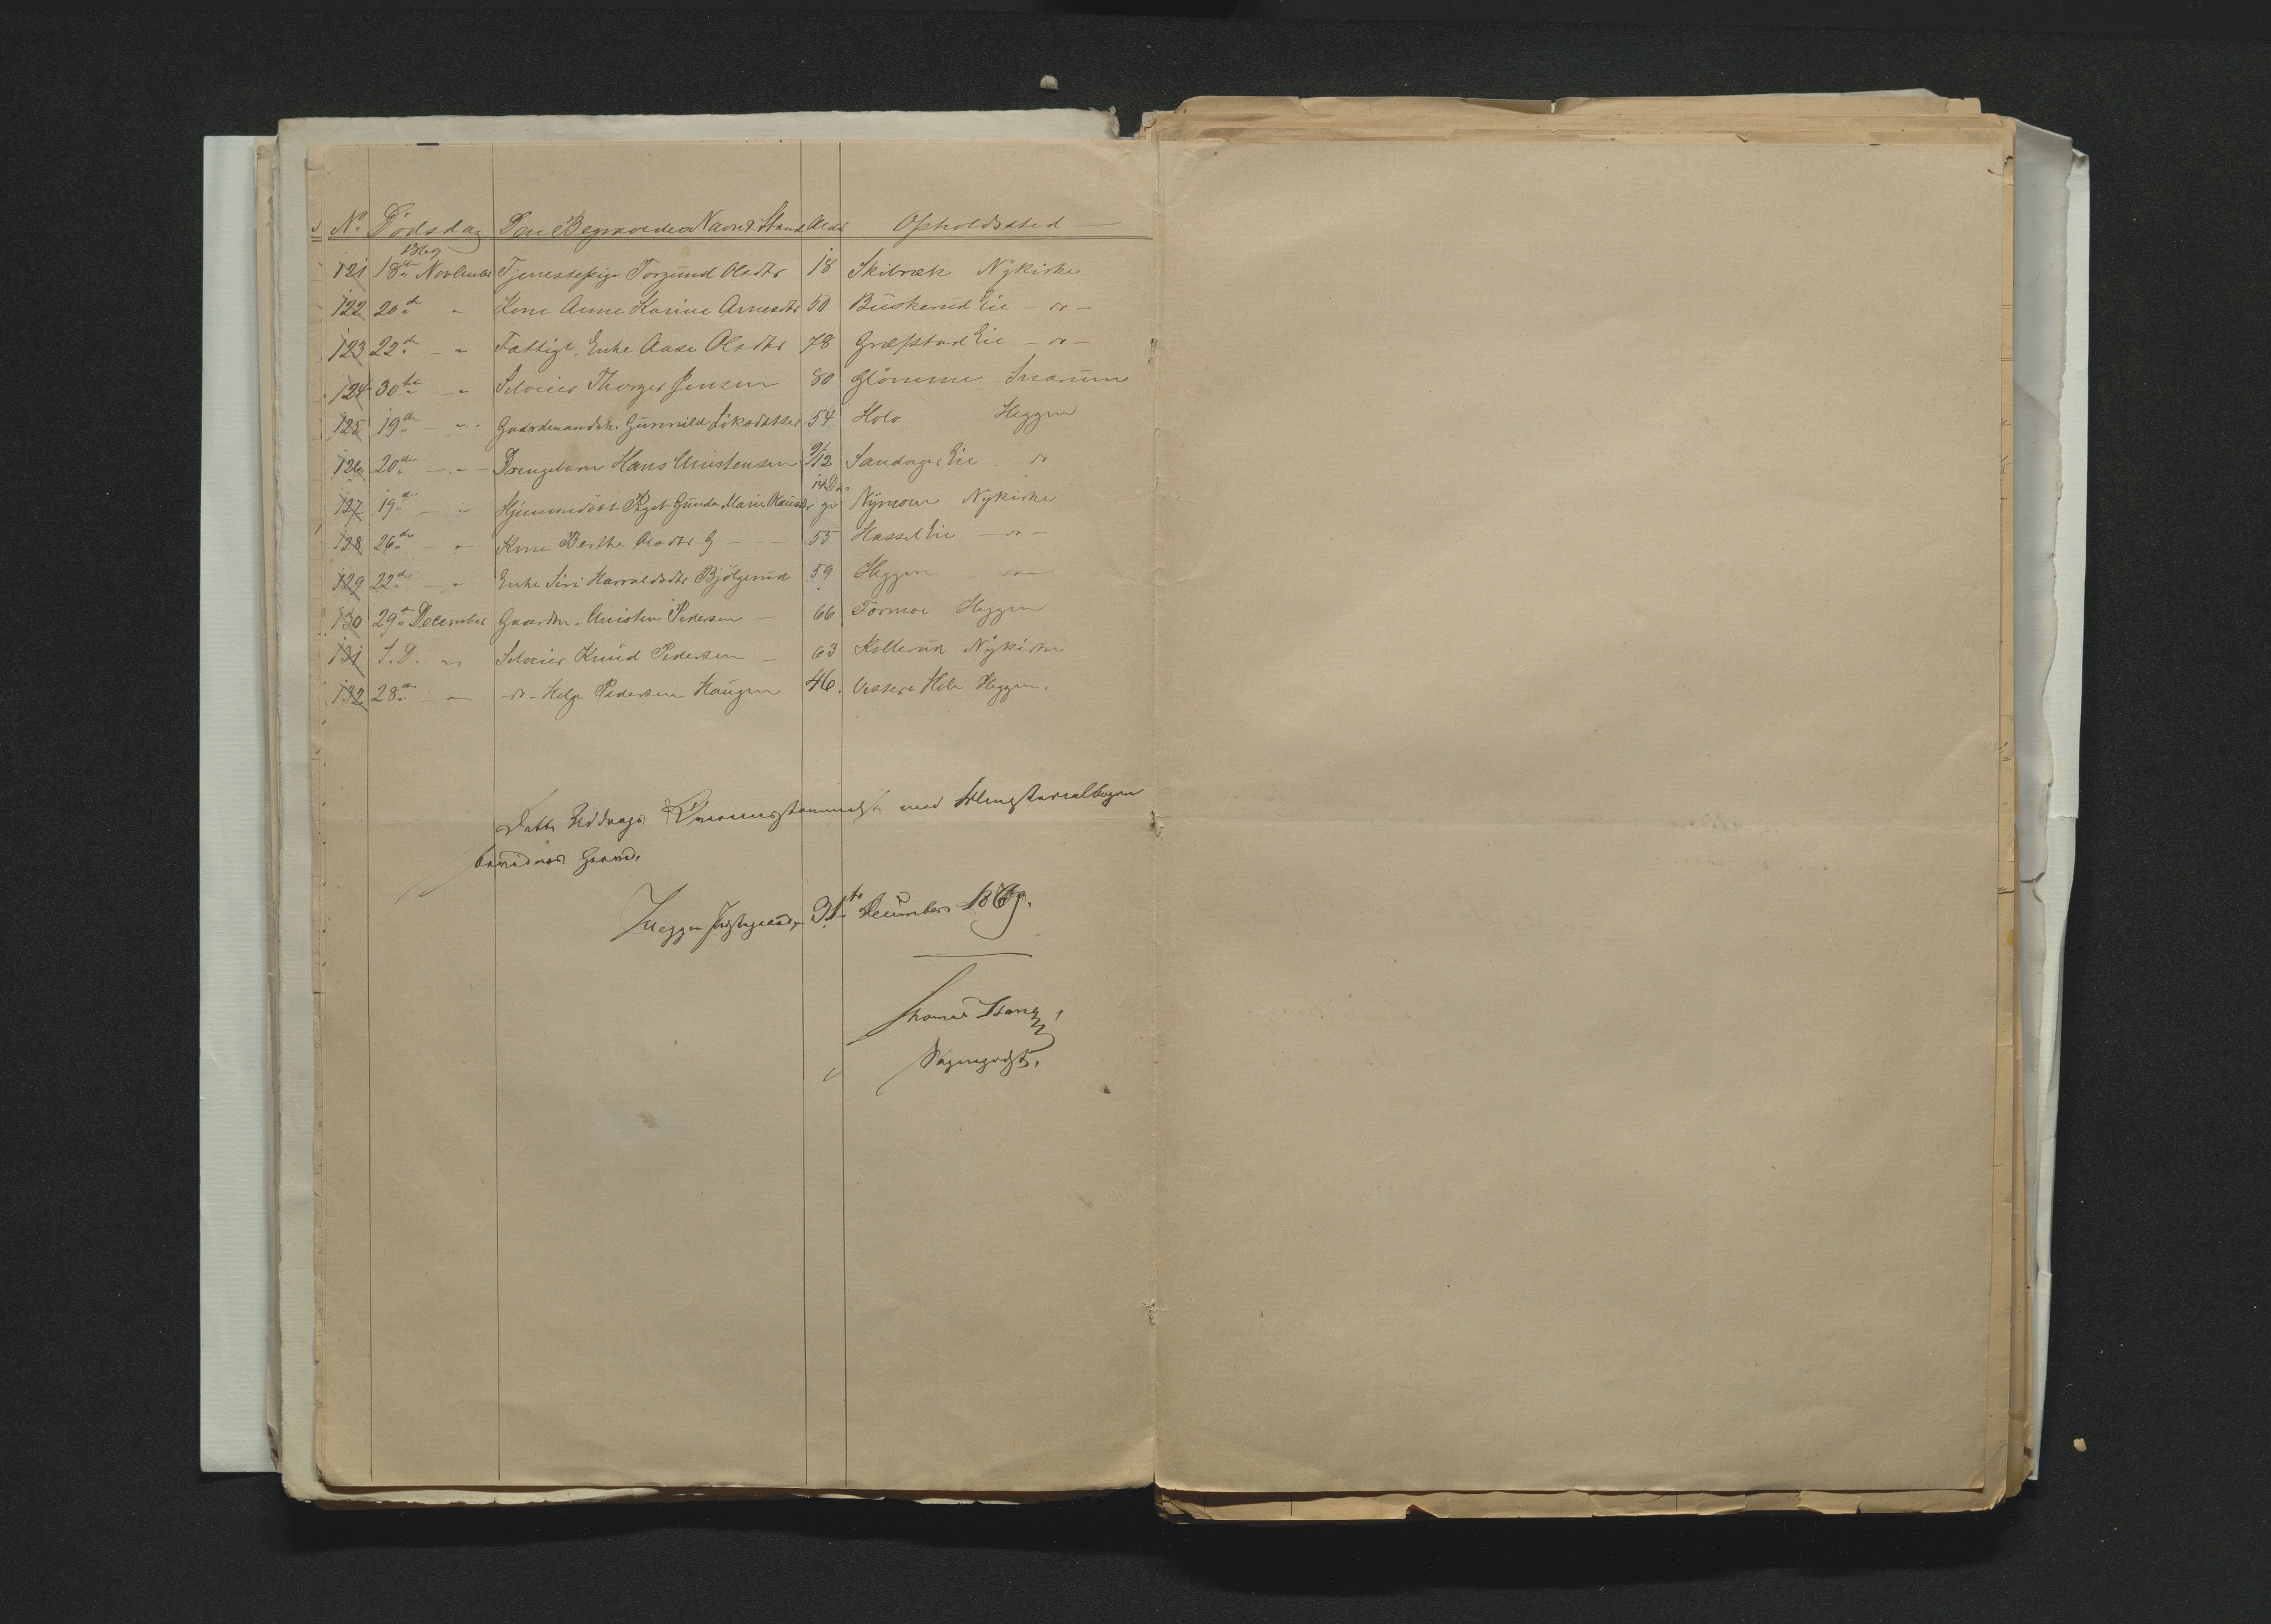 No. Dödsdag Den Begravedes Navn & Stand Alder Opholdssted
1869
121 18de November Tjenestepige Torgund Olsdtr 18 Skibræk Nykirke
122 20de " Kone Anne Karine Arnesdtr 50 Buskerud Eie - do -
123 22de - " Fattigl. Enke Aase Olsdtr 78 Græfstad Eie - do -
124 30te - " Selveier Thorger Jensen 80 Glömme Snarum
125 19de - " - Gaardmandsk. Gunnild 54 Holo Heggen
126 20de - " - Drengebarn Hans Christensen 9/12 Sandager Eie - do
14 Da
127 19de - " Hjemmedöbt Pigeb. Gunda Marie ge Nymoen Nykirke
128 26de - " Kone Berthe Olsdtr G - - 55 Hassel Eie - do -
129 22de - " Enke Siri Harraldsdtr Bjölgerud 59 Heggen - do -
130 29de December Gaardm. Christen Pedersen - 66 Formoe Heggen
131 S. D. " Selveier Knud Pedersen - 63 Kollerud Nykirke
132 28de - " - do - Helge Pedersen Haugen 46. Vestere Holo Heggen.
Dette Uddrags Overeensstemmelse med Ministerialbogen
bevidnes herved.
Heggen Præstegaard 31te December 1869.
Thomas
Sogneprest.